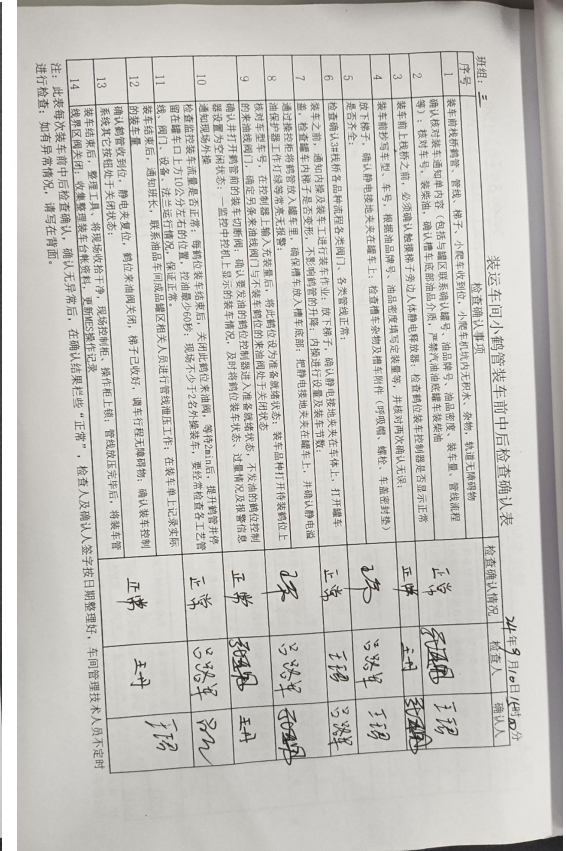 装运车间小鹤管装车前中后检查确认表
班组:三
24年9月10日 时 分
序号 检查确认事项 检查确认情况 检查人 确认人
1 装车前栈桥鹤管、管线、梯子、小爬车收到位,小爬车机坑内无积水、杂物;轨道无障碍物 正常
2 确认核对装车通知单内容(包括与罐区联系确认罐号、油品牌号、油品密度、装车量、管线流程
等);核对车号、装柴油,确认槽车底部油品介质,严禁汽油底罐车装柴油
3 装车前上栈桥之前,必须确认触摸梯子旁边人体静电释放器;检查鹤位装车控制器是否显示正常 正常 王丹
4 装车前抄写车型、车号,根据油品牌号、油品密度填写定装量等,并核对两次确认无误;
5 放下梯子,确认静电接地夹夹在罐车上;检查槽车杂物及槽车附件(呼吸帽、螺栓、车盖密封垫)
是否齐全;
6 检查确认3#栈桥各品种流程各类阀门、各类管线正常; 正常
7 装车之前,通知内操及装车工进行装车作业;放下梯子,确认静电接地夹夹在车体上,打开罐车
盖,检查罐车内梯子是否变形,不影响鹤管的升降;内操进行设量及装车节数;
8 通过操控柜将鹤管放入罐车里,确保槽车放入槽车底部;把静电接地夹夹在罐车上,并确认静电溢
油保护器工作灯绿等常亮无报警;
9 核对车型车号,在控制器上输入充装量后,将此鹤位设为准备就绪状态;装车品种打开待装鹤位上
的来油线阀门,确定另条来油线阀门与不装车鹤位的来油阀处于关闭状态 正常 王丹
10 确认并打开鹤管前的装车切断阀,确认要发油的鹤位控制器进入准备就绪状态,不发油的鹤位控制
器设置为空闲状态;一监控中控机上显示的装车情况,及时将鹤位装车状态、过量情况及报警信息
通知现场外操 正常
11 检查监控装车流量是否正常,每鹤位装车结束后,关闭此鹤位来油阀,等待2min后,提升鹤管并停
留在罐车口上方10公分左右的位置,控油最少60秒;现场不少于2名外操装车,要经常检查各工艺管
线、阀门、设备、法兰运行情况,保证正常。
12 装车结束后,通知班长,联系油品车间成品罐区相关人员进行管线泄压工作;在装车单上记录实际
的装车量 正常 王丹
13 确认鹤管收到位,静电夹复位,鹤位来油阀关闭,梯子已收好,调车行程无障碍物;确认装车控制
系统其它按钮处于关闭状态;
14 装车结束后,整理工具、将现场收拾干净,现场控制柜、操作柜上锁;管线放压完毕后,将装车管
线界区阀关闭;收集整理装车台帐资料,更新MES操作记录
注:此表每次装车前中后检查确认,确认无异常后,在确认结果栏些“正常”,检查人及确认人签字按日期整理好,车间管理技术人员不定时
进行检查;如有异常情况,请写在背面。